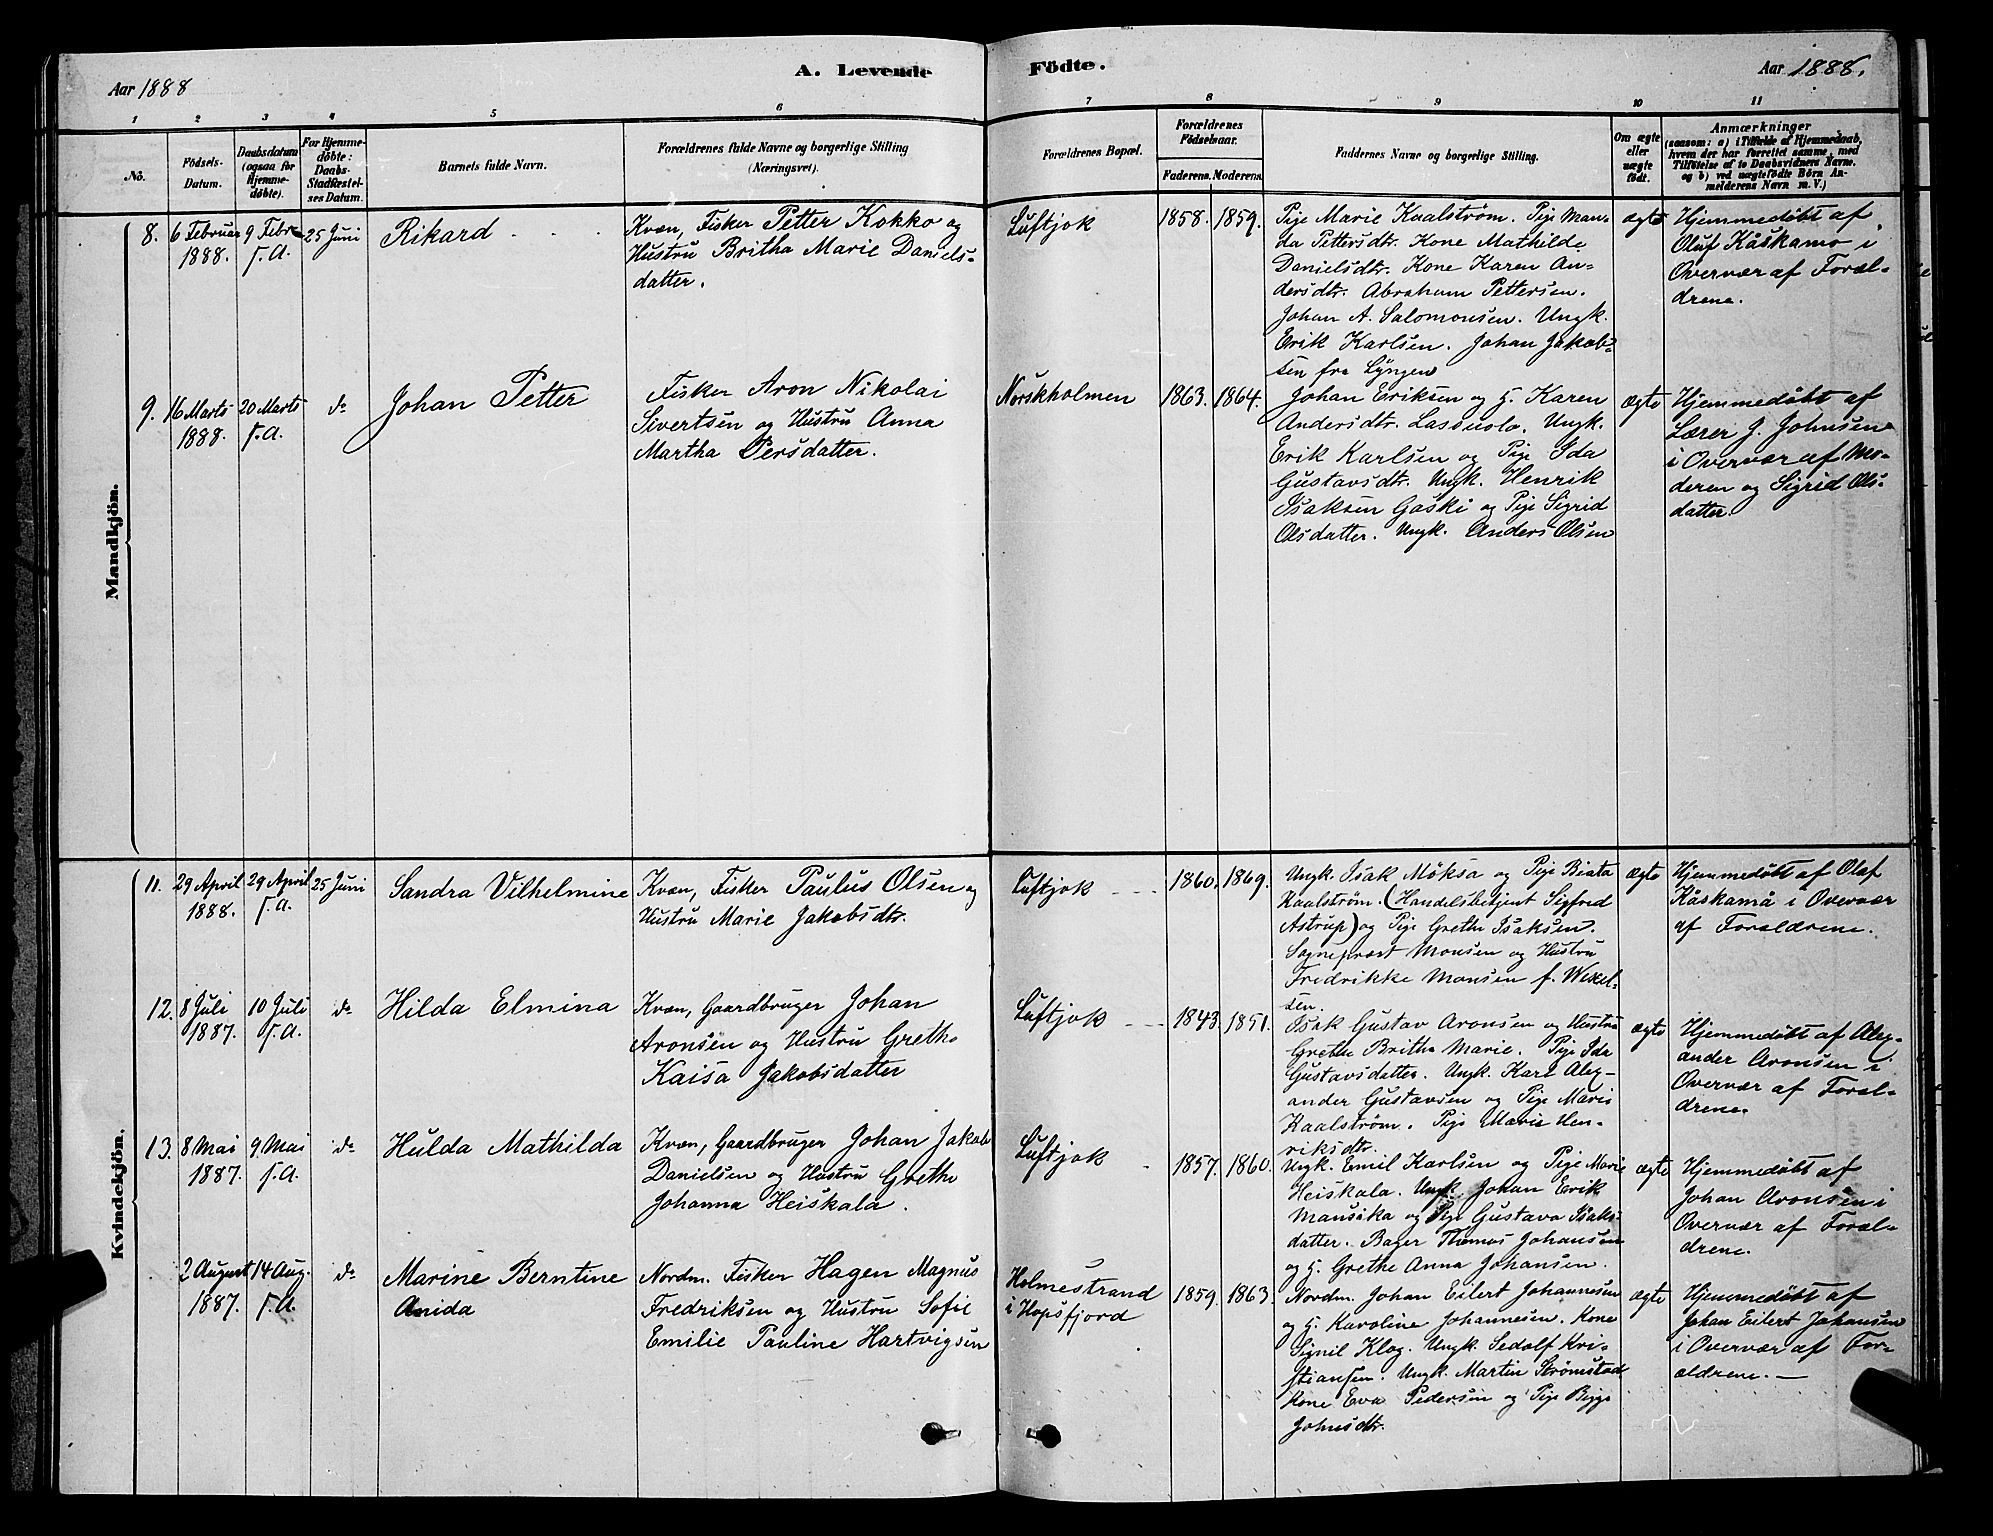 Aar 1888
A. Levende
Födte.
Aar 1888.
1 2 3 4 5 6 7 8 9 10 11
No.
Födsels-
Datum.
Daabsdatum
(ogsaa for
Hjemme-
döbte).
For Hjemme-
döbte:
Daabs-
Stadfæstel-
ses Datum.
Barnets fulde Navn.
Forældrenes fulde Navne og borgerlige Stilling
(Næringsvei).
Forældrenes Bopæl.
Forældrenes
Födselsaar.
Faderens. Moderens.
Faddernes Navne og borgerlige Stilling.
Om ægte
eller
uægte
födt.
Anmærkninger
(saasom: a) i Tilfælde af Hjemmedaab,
hvem der har forrettet samme, med
Tilföielse af to Daabsvidners Navne,
og b) ved uægtefödte Börn An-
melderens Navn m. V.)
Mandkjön.
8.
6 Februar
1888.
9 Febr.
s. A.
25 Juni
Rikard
Kvæn, Fisker Petter Kokko og
Hustru Britha Marie Daniels-
datter.
Luftjok
1858.
1859.
Pige Marie Kaalström. Pige Man-
da Pettersdtr. Kone Mathilde
Danielsdtr. Kone Karen An-
dersdtr. Abraham Pettersen.
Johan A. Salomonsen. Ungk.
Erik Karlsen. Johan Jakob-
sen fra Lyngen
ægte
Hjemmedøbt af
Oluf Kåskamo i
Overvær af Foræl-
drene.
9.
16 Marts
1888.
20 Marts
s. A.
do
Johan Petter
Fisker Aron Nikolai
Sivertsen og Hustru Anna
Martha Persdatter.
Norskholmen
1863.
1864.
Johan Eriksen og H. Karen
Andersdtr. Lassuola. Ungk.
Erik Karlsen og Pige Ida
Gustavsdtr. Ungk. Henrik
Isaksen Gaski og Pige Sigrid
Olsdatter. Ungk. Anders Olsen
ægte
Hjemmedøbt af
Lærer J. Johnsen
i Overvær af Mo-
deren og Sigrid Ols-
datter.
Kvindekjön.
11.
29 April
1888.
29 April
s. A.
25 Juni
Sandra Vilhelmine
Kvæn, Fisker Paulus Olsen og
Hustru Marie Jakobsdtr.
Luftjok
1860.
1869.
Ungk. Isak Möksa og Pige Biata
Kaalström. (Handelsbetjent Sigfred
Astrup) og Pige Grethe Isaksen.
Sogneprest Monsen og Hustru
Fredrikke Monsen f. Wexel-
sen.
ægte
Hjemmedøbt af Olaf
Kåskamå i Overvær
af Forældrene.
12.
8 Juli
1887.
10 Juli
s. A.
do
Hilda Elmina
Kvæn, Gaardbruger Johan
Aronsen og Hustru Grethe
Kaisa Jakobsdatter
Luftjok
1843.
1851.
Isak Gustav Aronsen og Hustru
Grethe Britha Marie. Pige Ida
Gustavsdatter. Ungk. Karl Alex-
ander Gustavsen og Pige Marie
Kaalström. Pige Marie Hen-
riksdtr.
ægte
Hjemmedøbt af Alex-
ander Aronsen i
Overvær af Foræl-
drene.
13.
8 Mai
1887.
9 Mai
s. A.
do
Hulda Mathilda
Kvæn, Gaardbruger Johan Jakob
Danielsen og Hustru Grethe
Johanna Heiskala.
Luftjok
1857.
1860.
Ungk. Emil Karlsen og Pige Marie
Heiskala. Ungk. Johan Erik
Mansika og Pige Gustava Isaks-
datter. Bager Thomas Johansen
og H. Grethe Anna Johansen.
ægte
Hjemmedøbt af
Johan Aronsen i
Overvær af Foræl-
drene.
2 August
1887.
14 Aug.
s. A.
do
Marine Berntine
Anida
Nordm. Fisker Hagen Magnus
Fredriksen og Hustru Sofie
Emilie Pauline Hartvigsen
Holmestrand
i Hopsfjord
1859.
1863.
Nordm. Johan Eilert Johannesen
og H. Karoline Johannesen. Kone
Signil Klog. Ungk. Sedolf Kri-
stiansen. Ungk. Martin Strömstad
Kone Eva Pedersen og Pige Bigge
Johnsdtr.
ægte
Hjemmedøbt af
Johan Eilert Johansen
i Overvær af For-
ældrene.